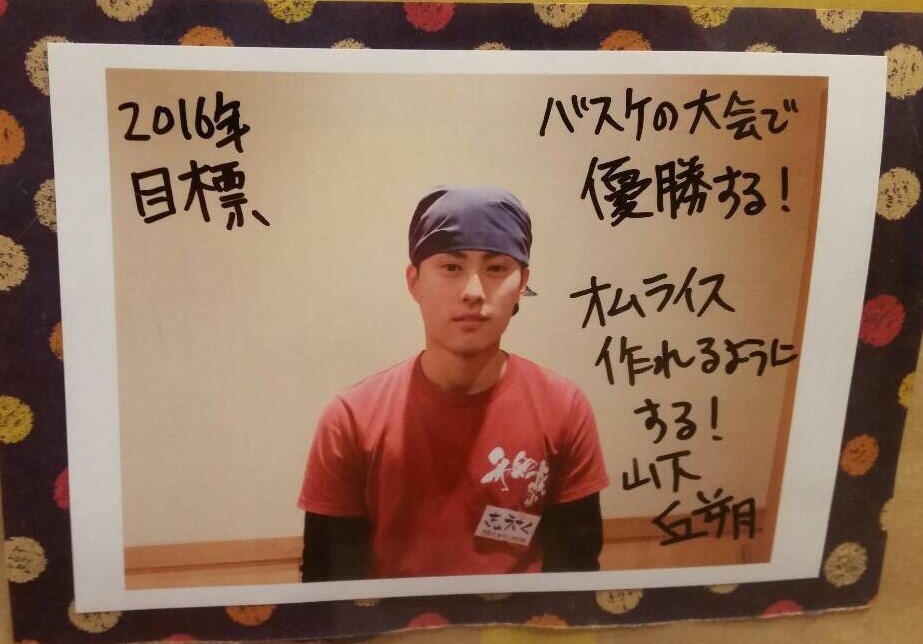 2016年
目標
バスケの大会で
優勝する!
オムライス
作れるように
する!
山下
丘朔